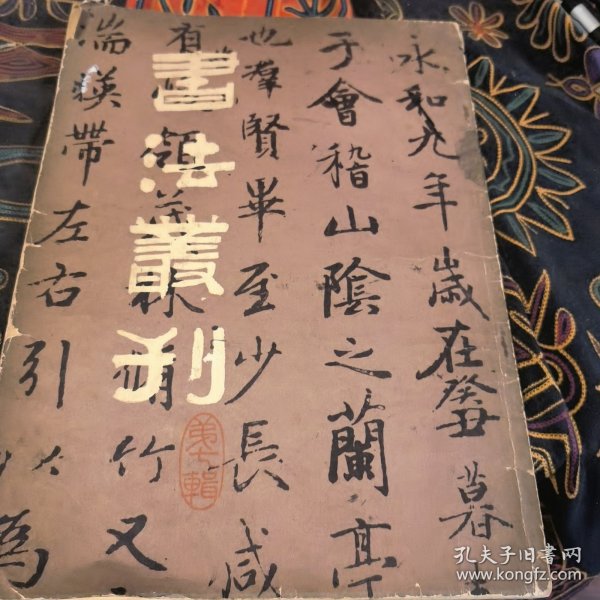 書法叢刊
第七輯
永和九年歲在癸丑暮春
于會稽山陰之蘭亭
也羣賢畢至少長咸
有領茂林脩竹又
湍暎帶左右引以為
孔夫子旧书网
www.kongfz.com